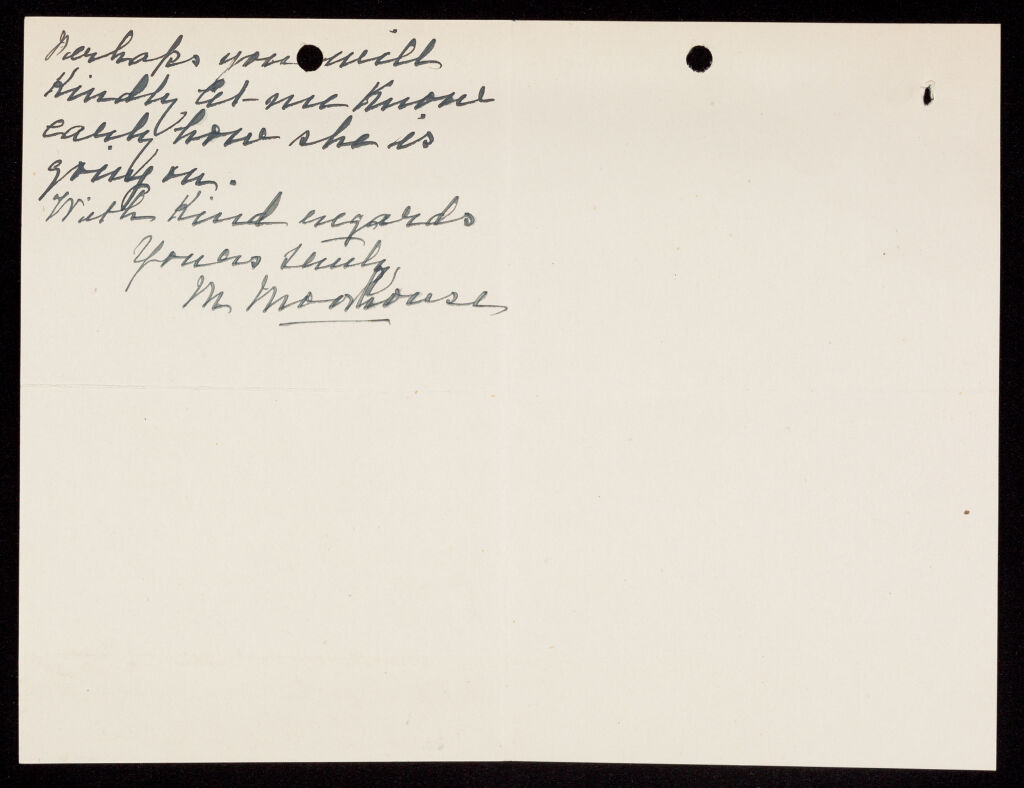 Perhaps you will
Kindly let me know
early how she is
going on.
With Kind regards
Yours truly,
M. Moorhouse